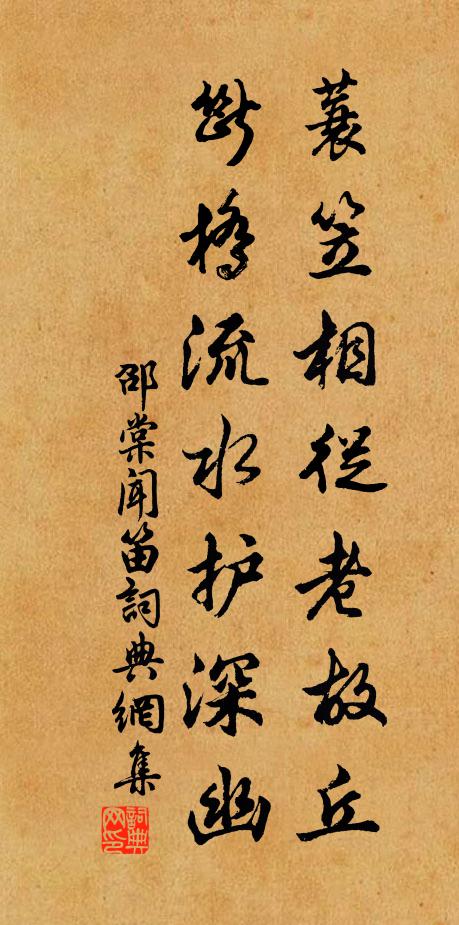 蓑笠相從老故丘
斷橋流水护深幽
邵棠闻笛詞典網集
詞典网印